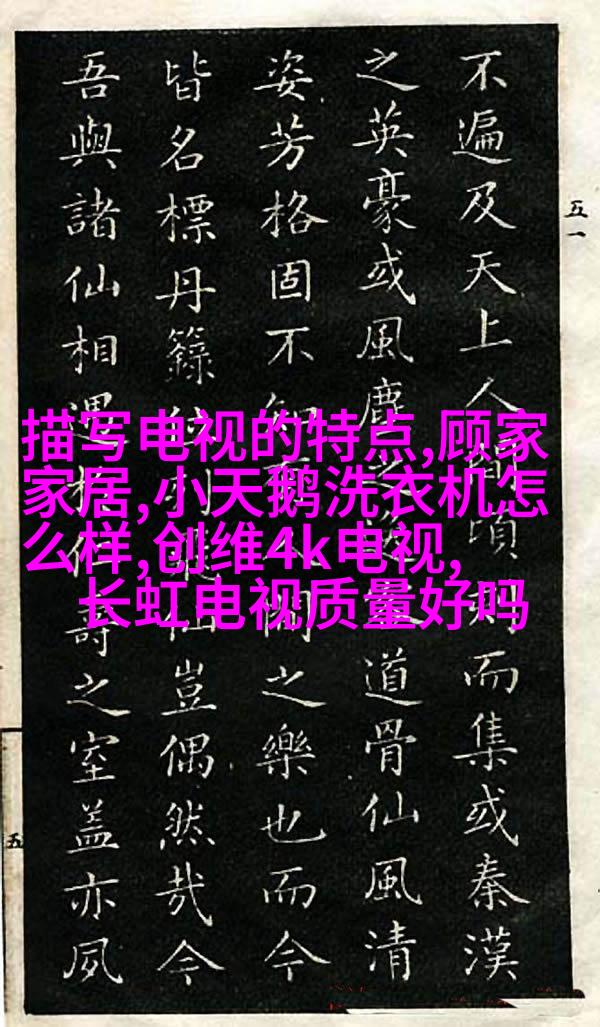 不遍及天上人間頃刻而集或秦漢
之英豪或風塵之道骨仙風清
姿芳格固不知間之樂也而今
皆名標丹籙位列仙豈偶然哉今
吾與諸仙相遇於仁壽之室蓋亦夙
五一
五
描写电视的特点,顾家
家居,小天鹅洗衣机怎
么样,创维4k电视,
长虹电视质量好吗